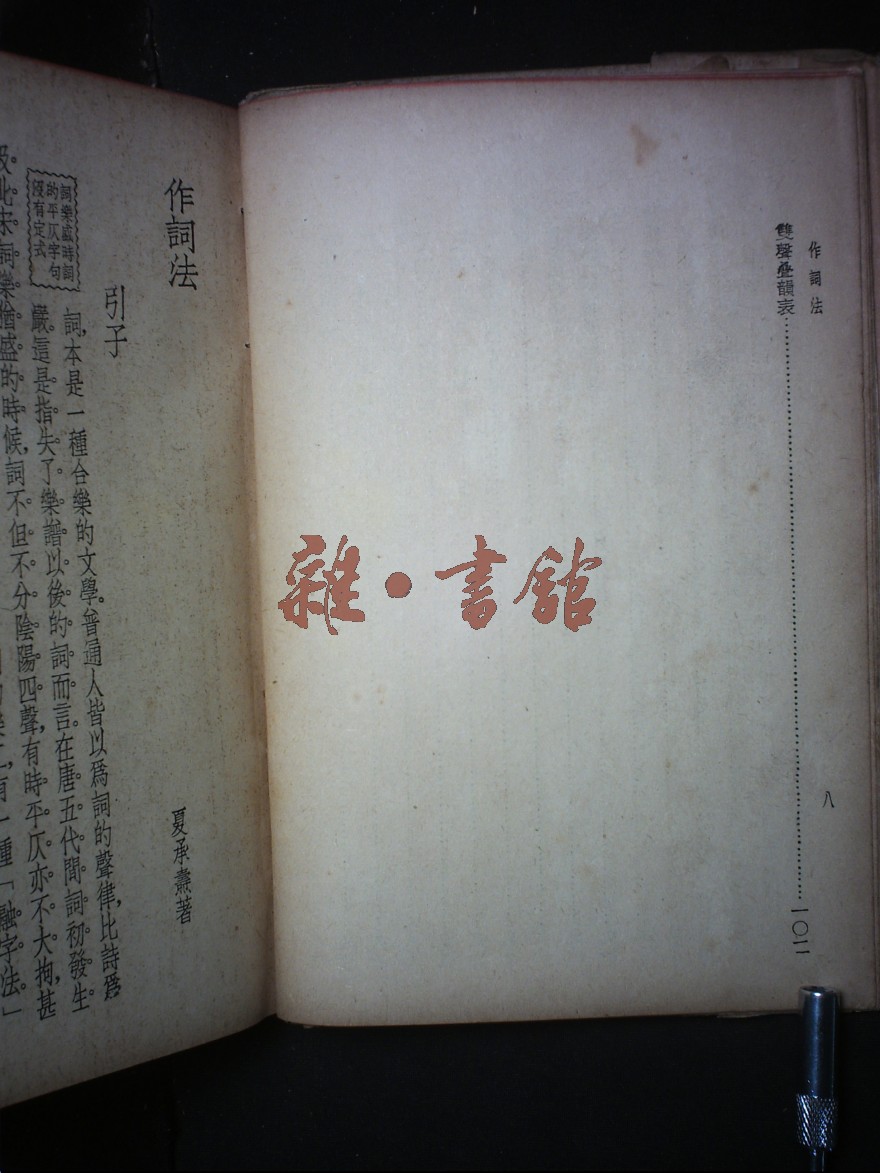 作詞法
雙聲叠韻表……一〇二
八
雜·書館
作詞法
夏承燾著
引子
詞樂盛時詞
的平仄字句
沒有定式
詞,本是一種合樂的文學。普通人皆以爲詞的聲律,比詩爲
嚴。這是指失了樂譜以後的詞而言。在唐五代間詞初發生。
及北宋詞樂猶盛的時候,詞不但不分陰陽四聲,有時平仄亦不大拘,甚
有一種「融字法。」